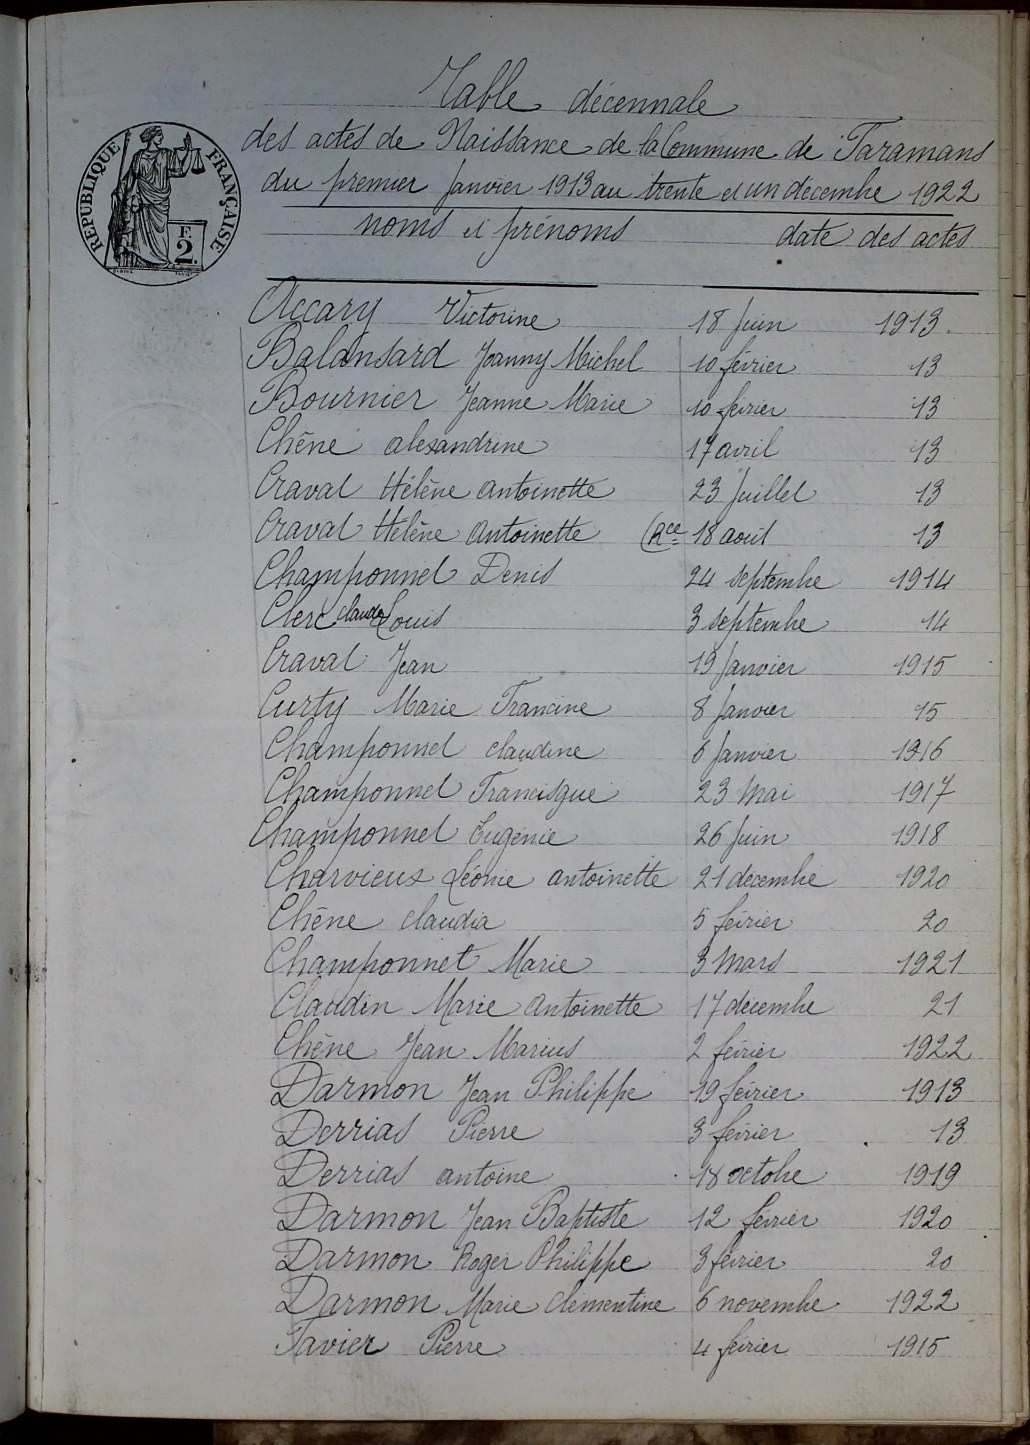 Table décennale
des actes de Naissance de la Commune de Taramans
du premier Janvier 1913 au trente et un décembre 1922
noms et prénoms date des actes
RÉPUBLIQUE FRANÇAISE
F.
2.
Accary Victorine 18 Juin 1913.
Balansard Joanny Michel 10 févier 13
Bournier Jeanne Marie 10 févier 13
Chêne alexandrine 17 avril 13
Craval Hélène antoinette 23 Juillet 13
Craval Hélène Antoinette (Rce 18 août 13
Champonnel Denis 24 septembre 1914
Clerc claude Louis 3 septembre 14
Craval Jean 19 Janvier 1915
Curty Marie Francine 8 Janvier 15
Champonnel claudine 6 Janvier 1916
Champonnel Francisque 23 Mai 1917
Champonnel Eugénie 26 Juin 1918
Charvieux Léonie antoinette 21 décembre 1920
Chêne claudia 5 févier 20
Champonnet Marie 3 Mars 1921
Claudin Marie Antoinette 17 décembre 21
Chêne Jean Marius 2 févier 1922
Darmon Jean Philippe 19 févier 1913
Derrias Pierre 3 févier 13
Derrias antoine 18 octobre 1919
Darmon Jean Baptiste 12 févrièr 1920
Darmon Roger Philippe 3 févier 20
Darmon Marie Clémentine 6 novembre 1922
Favier Pierre 4 févier 1915